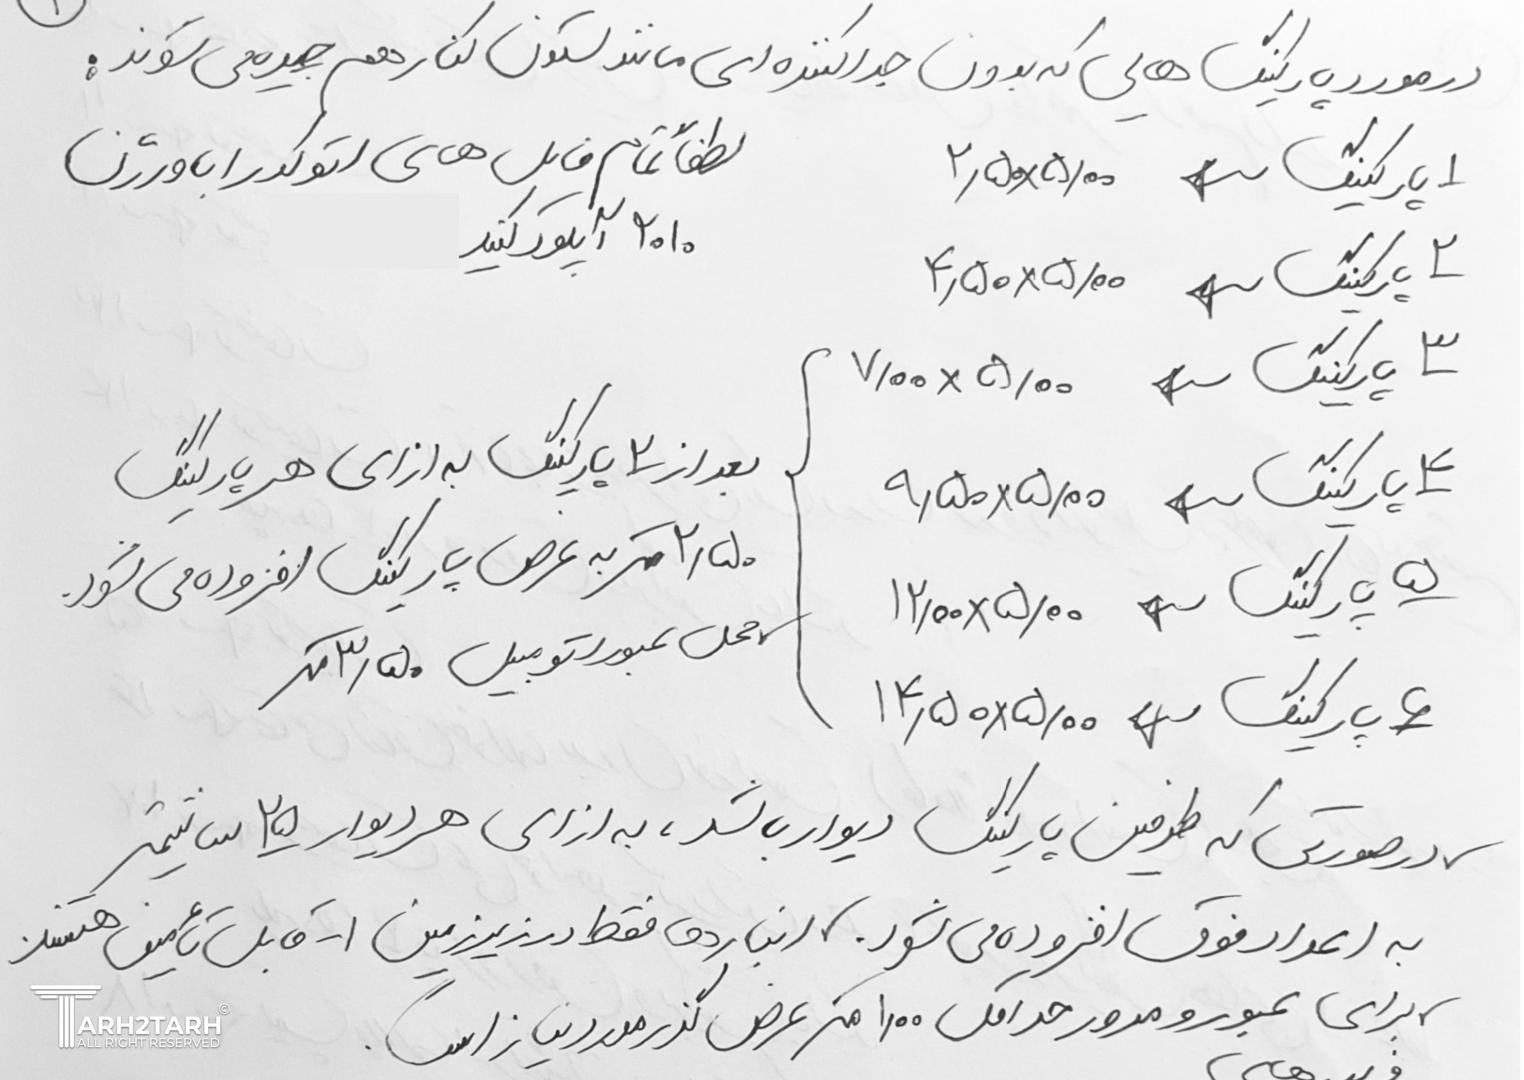 ۱
در مورد پارکینگ هایی که بدون جداکننده ای مانند ستون کنار هم چیده می شوند :
۱ پارکینگ ← ۲٫۵۰×۵٫۰۰
لطفاً تمام فایل های اتوکد را با ورژن
۲۰۱۰ آپلود کنید
۲ پارکینگ ← ۴٫۵۰×۵٫۰۰
۳ پارکینگ ← ۷٫۰۰×۵٫۰۰
۴ پارکینگ ← ۹٫۵۰×۵٫۰۰
۵ پارکینگ ← ۱۲٫۰۰×۵٫۰۰
۶ پارکینگ ← ۱۴٫۵۰×۵٫۰۰
بعد از ۲ پارکینگ به ازای هر پارکینگ
۲٫۵۰ متر به عرض پارکینگ افزوده می شود.
✓ محل عبور اتومبیل ۳٫۵۰ متر
✓ در صورتی که طرفین پارکینگ دیوار باشد، به ازای هر دیوار ۲۵ سانتیمتر
به اعداد فوق افزوده می شود. ✓ انباری ها فقط در زیرزمین ۱- قابل تأمین هستند
✓ برای عبور و مرور حداقل ۱٫۰۰ متر عرض گذر مورد نیاز است.
TARH2TARH©
ALL RIGHT RESERVED